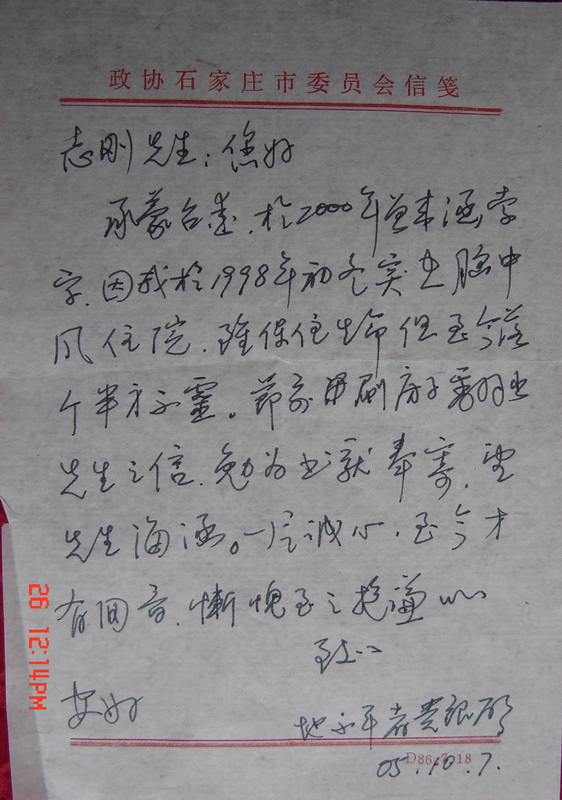 政协石家庄市委员会信笺
志刚先生：您好
承蒙台爱，於2000年曾来涵索
字，因我於1998年初冬突患脑中
风住院，虽保住生命但至今落
个半身不灵。节前因刷房子翻出
先生之信，勉为书就奉寄，望
先生海涵。一片诚心，至今才
有回音，惭愧至之抱谦
致以
安好
05.10.7.
D86.7.18
26 12:14PM